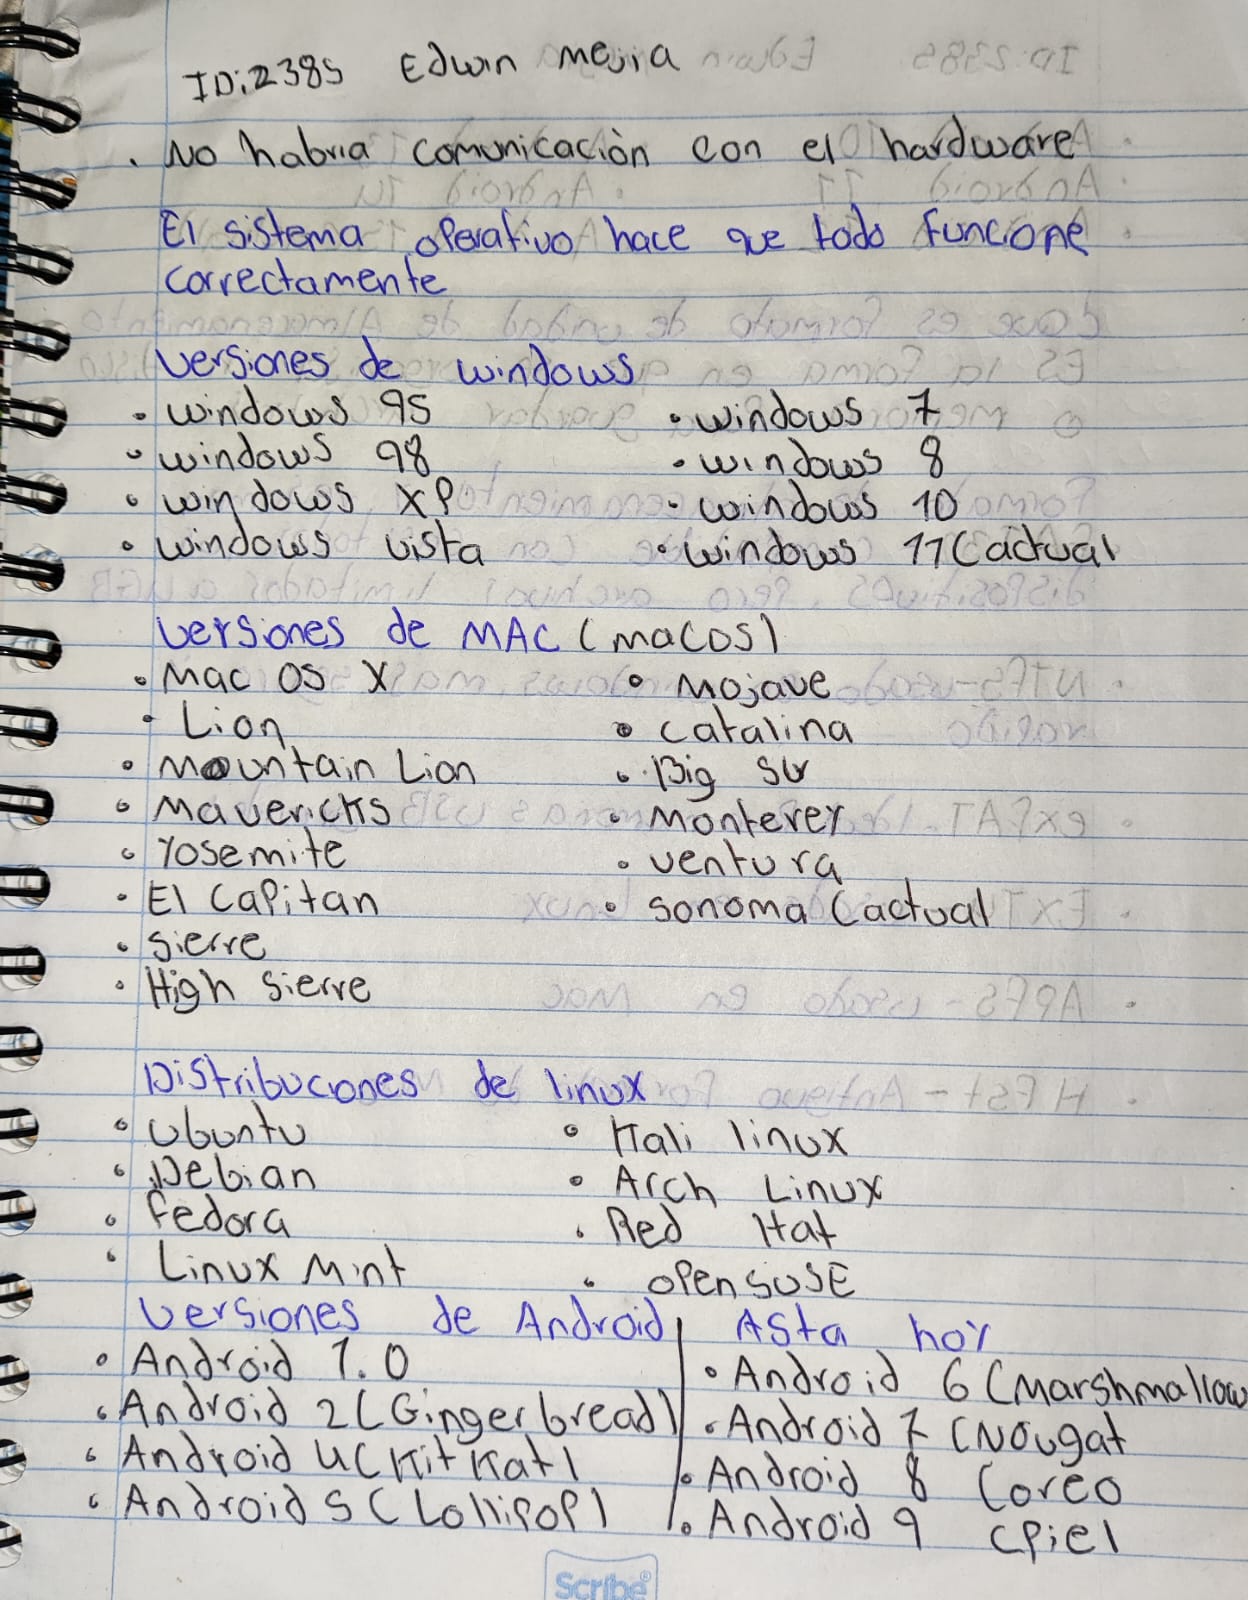 ID:2385 Edwin mejia
. No habria comunicaciòn con el hardware
El sistema operativo hace que todo funcione
correctamente
versiones de windows
• windows 95
• windows 98
• windows XP
• windows vista
• windows 7
• windows 8
• windows 10
• windows 11 (actual
versiones de MAC (macOS)
• Mac OS X
• Lion
• Mountain Lion
• Mavericks
• Yosemite
• El Capitan
• Sierre
• High Sierre
• Mojave
• Catalina
• Big Sur
• Monterey
• ventura
• sonoma (actual
Distribuciones de linux
• Ubuntu
• Debian
• fedora
• Linux Mint
• Kali linux
• Arch Linux
• Red Hat
• openSUSE
versiones de Android Asta hoy
• Android 1.0
• Android 2 (Gingerbread)
• Android 4 (KitKat)
• Android 5 (Lollipop)
• Android 6 (Marshmallow
• Android 7 (Nougat
• Android 8 (oreo
• Android 9 (Piel
Scribe®